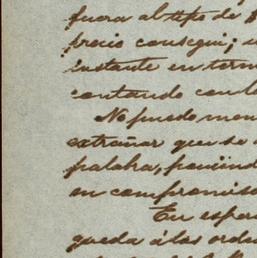 fuera al tipo de
precio conseguí;
instante en term
contando con l
No puedo men
extrañar que se
palabra, ponién
en compromiso
En esper
queda á las orde